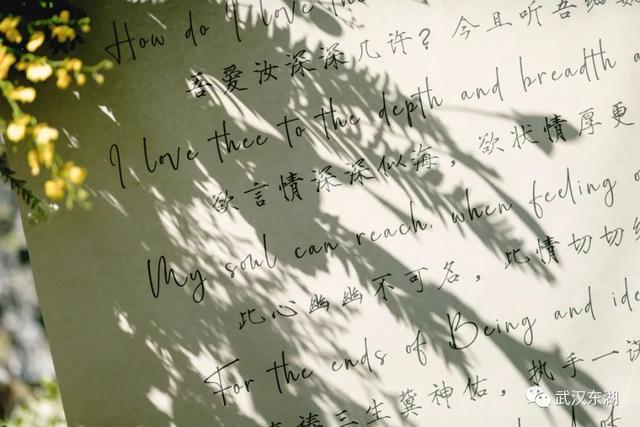 How do I love
吾爱汝深深几许？今且听吾细
I love thee to the depth and breadth
欲言情深深似海，欲状情厚更
My soul can reach, when feeling
此心幽幽不可名，此情切切
For the ends of Being and
三生冀神佑，执手一
武汉东湖